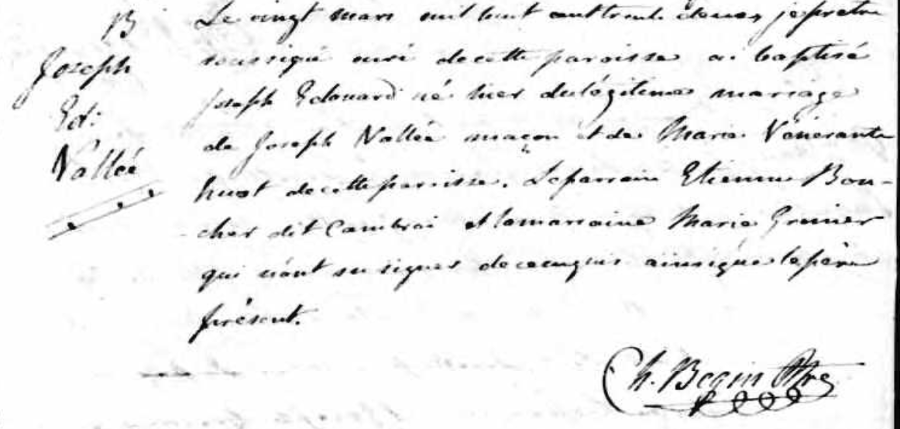 B
Joseph
Ed:
Vallée
Le vingt mars mil huit cent trente deux, je prêtre
soussigné curé de cette paroisse ai baptisé
Joseph Edouard né hier du légitime mariage
de Joseph Vallée maçon et de Marie Vénérante
huot de cette paroisse. Le parrain Etienne Bou-
cher dit Cambrai et la marraine Marie Grenier
qui n'ont su signer de ce enquis ainsi que le père
présent.
Ch. Begin Ptre